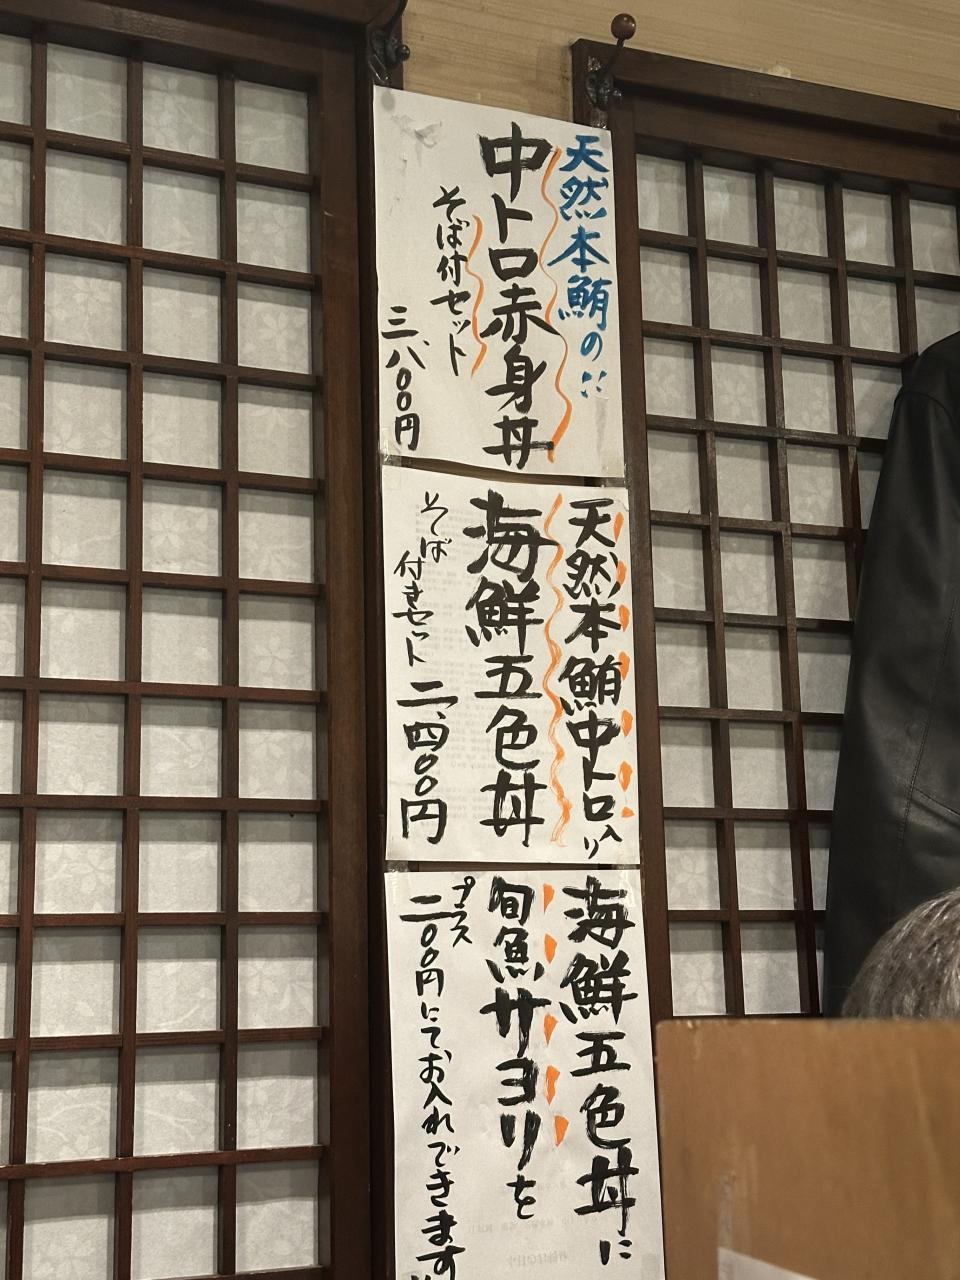 天然本鮪の
中トロ赤身丼
そば付セット
三、八〇〇円
天然本鮪中トロ入り
海鮮五色丼
そば付きセット
二、四〇〇円
海鮮五色丼に
旬魚サヨリを
プラス
二〇〇円にてお入れできます